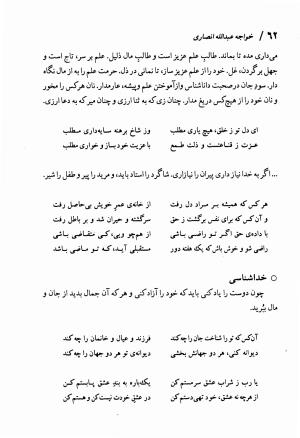 ۶۲ / خواجه عبدالله انصاری
می‌داری مده تا بماند. طالبِ علم عزیز است و طالبِ مال ذلیل. علم بر سر، تاج است و
جهل برگردن، غُل. خود را از علم عزیز ساز، تا نمانی در ذل. حرمت علم را به از مال نگاه
دار. سودِ جان در صحبت داناشناس وازآموختن علم وپیشه، عارمدار. نان هرکس را مخور
و نان خود را از هیچ‌کس دریغ مدار. چنان زی‌که به ثنا ارزی و چنان میر که به دعا ارزی.
ای دل تو ز خلق، هیچ یاری مطلب
وز شاخ برهنه سایه‌داری مطلب
عزت ز قناعتست و ذلت طمع
با عزیت خود بساز و خواری مطلب
... اگر به خدا نیاز داری پیران را نیازاری. شاگرد را استاد باید، و مرید را پیر و طفل را شیر.
هر کس که همیشه بر سراد دل رفت
از خانه‌ی عمرِ خویش بی‌حاصل رفت
و آن کس که برای نفس برگشت ز حق
سرگشته و حیران شد و بر باطل رفت
با داده‌ی حق اگر تو راضی باشی
از هم‌چو ویی، کی متقاضی باشی
راضی شو و خوش باش که یک هفته دور
مستقبلی آید، که تو ماضی باشی
○ خداشناسی
چون دوست را یاد کنی باید که خود را آزاد کنی و هر که آن جمال بدید از جان و
مال بُبرید.
آن‌کس که تو را شناخت جان را چه‌کند
فرزند و عیال و خانمان را چه‌کند
دیوانه کنی، هر دو جهانش بخشی
دیوانه‌ی تو هر دو جهان را چه‌کند
یا رب ز شراب عشق سرمستم کن
یک‌باره به بندِ عشق پابستم کن
از هرچه نه عشق، خود تهی‌دستم کن
در عشقِ خودت نیست‌کن و هستم کن